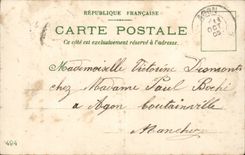 RÉPUBLIQUE FRANÇAISE
CARTE POSTALE
Ce côté est exclusivement réservé à l'adresse.
AGON
14
OCT
Mademoiselle Victorine
chez Madame Paul Boché
à Agon Coutainville
Manche
494